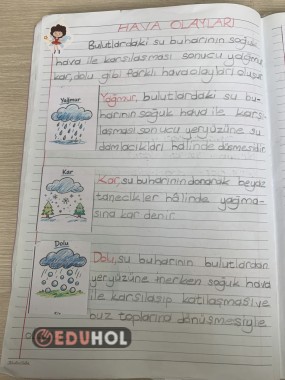 HAVA OLAYLARI
Bulutlardaki su buharının soğuk
hava ile karşılaşması sonucu yağmur
kar, dolu gibi farklı hava olayları oluşur.
Yağmur
Yağmur, bulutlardaki su bu-
harının soğuk hava ile karşı-
laşması sonucu yeryüzüne su
damlacıkları hâlinde düşmesidir.
Kar
Kar, su buharının donarak beyaz
tanecikler hâlinde yağma-
sına kar denir.
Dolu
Dolu, su buharının bulutlardan
yeryüzüne inerken soğuk hava
ile karşılaşıp katılaşması ve
buz toplarına dönüşmesiyle
EDUHOL